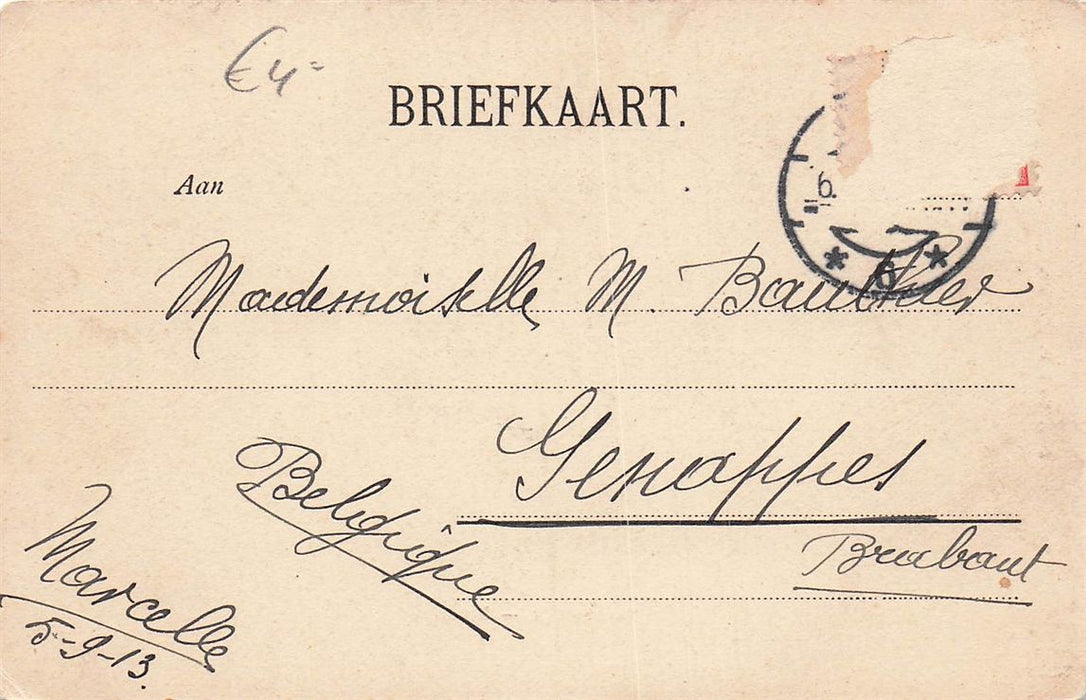 €4=
BRIEFKAART.
Aan
6.
6
Mademoiselle M. Bauthier
Genappes
Belgique
Brabant
Marcelle
5-9-13.